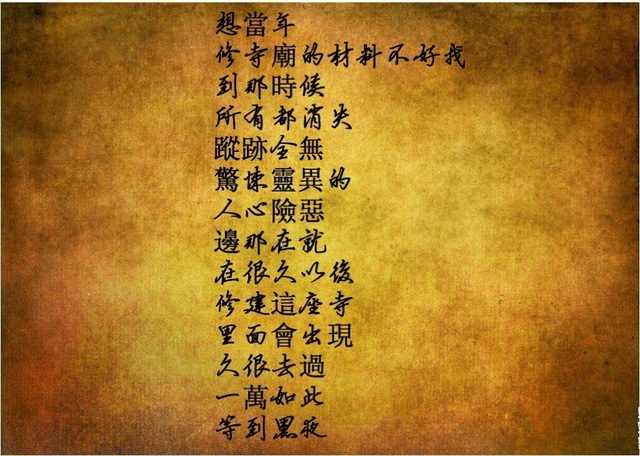 想當年
修寺廟的材料不好找
到那時候
所有都消失
蹤跡全無
驚悚靈異的
人心險惡
邊那在就
在很久以後
修建這座寺
里面會出現
久很去過
一萬如此
等到黑夜